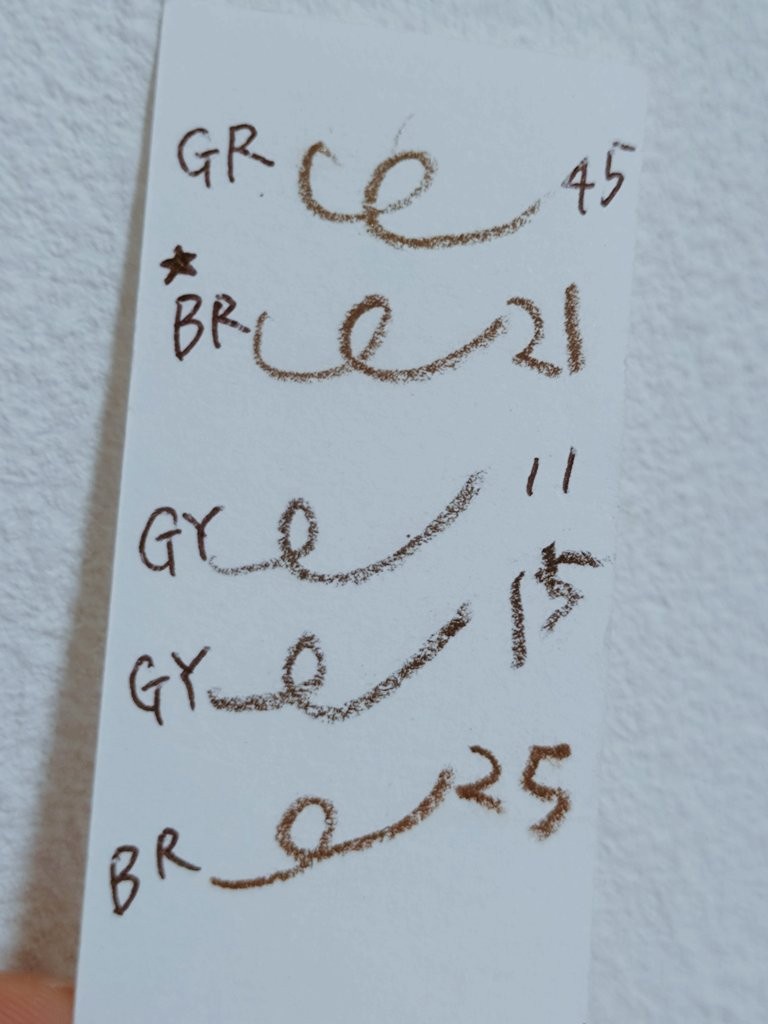 GR 45
★
BR 21
GY 11
GY 15
BR 25